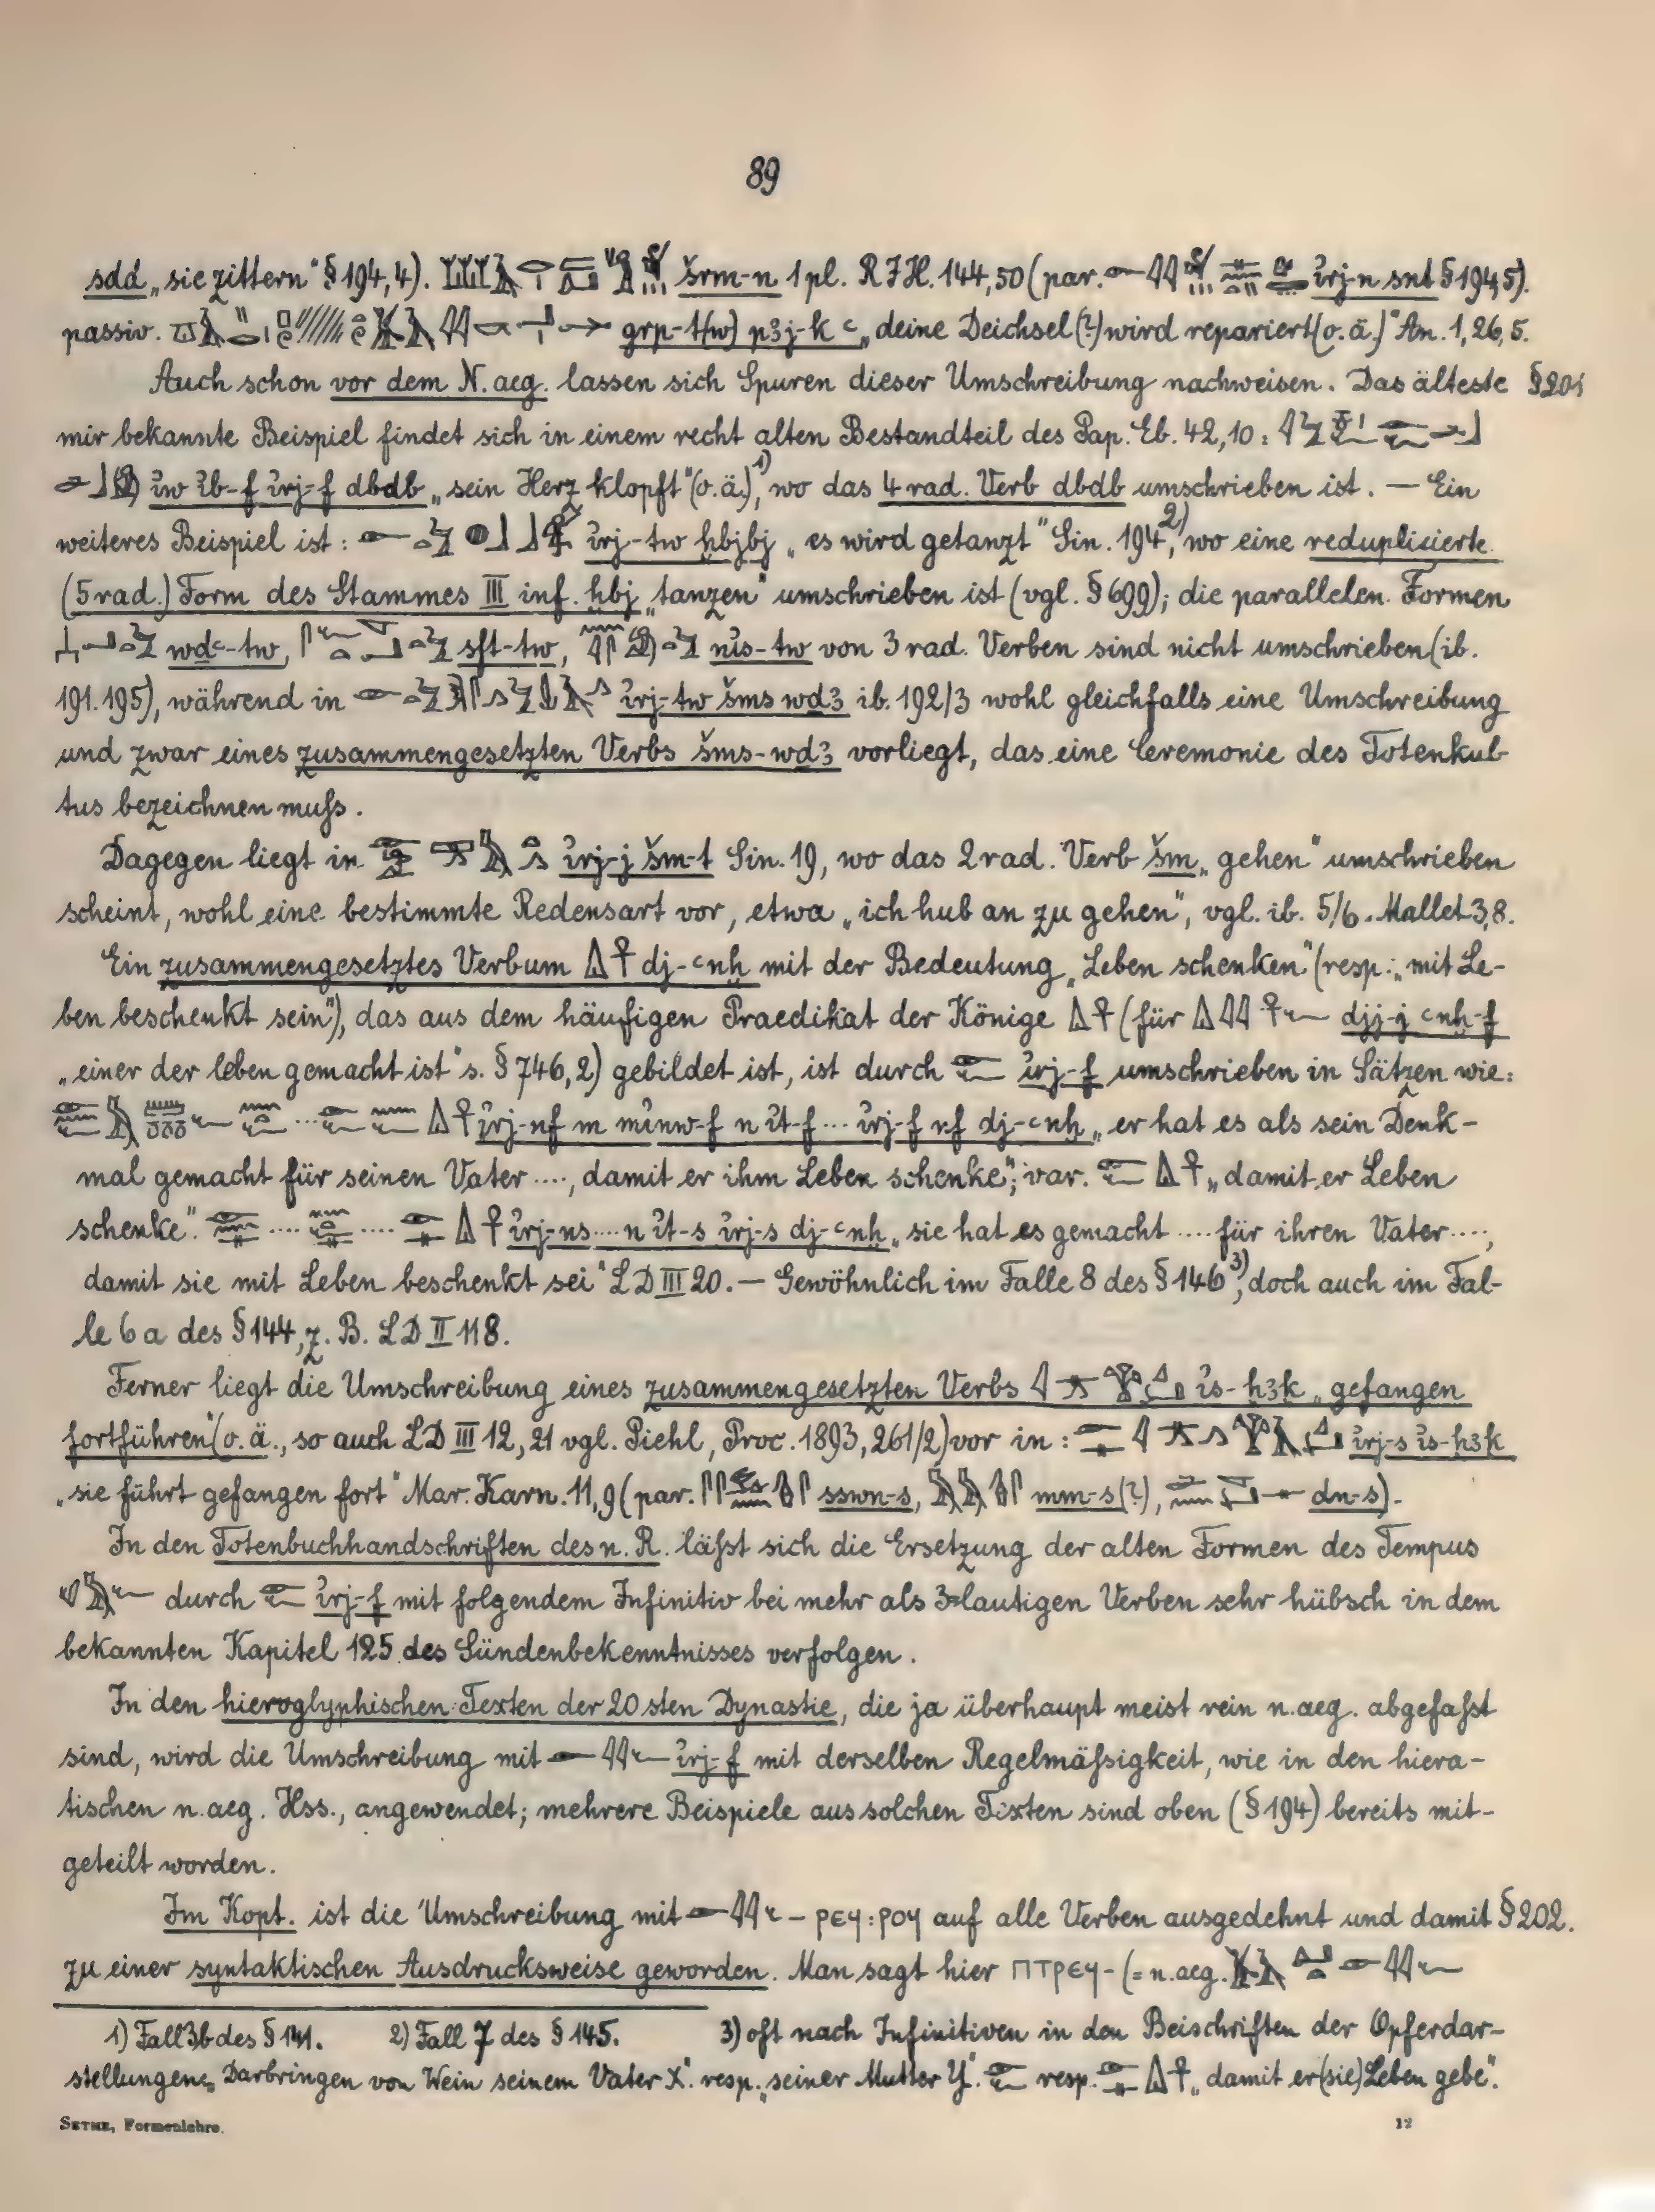 89
sdd „sie zittern“ § 194,4). šrm-n 1 pl. R J H. 144,50 (par. i҆rj-n snd § 194,5).
passiv. grp-t(w) p3j-k c „deine Deichsel(?) wird repariert (o. ä.)“ An. 1, 26, 5.
Auch schon vor dem N. aeg. lassen sich Spuren dieser Umschreibung nachweisen. Das älteste § 201
mir bekannte Beispiel findet sich in einem recht alten Bestandteil des Pap. Eb. 42,10:
i҆w i҆b-f i҆rj-f dbdb „sein Herz klopft“ (o. ä.)¹⁾, wo das 4 rad. Verb dbdb umschrieben ist. — Ein
weiteres Beispiel ist: i҆rj-tw ḫbjbj „es wird getanzt“ Sin. 194²⁾, wo eine reduplicierte
(5 rad.) Form des Stammes III inf. ḫbj „tanzen“ umschrieben ist (vgl. § 699); die parallelen Formen
wdc-tw, sft-tw, ni҆s-tw von 3 rad. Verben sind nicht umschrieben (ib.
191. 195), während in i҆rj-tw šms wd3 ib. 192/3 wohl gleichfalls eine Umschreibung
und zwar eines zusammengesetzten Verbs šms-wd3 vorliegt, das eine Ceremonie des Totenkul-
tus bezeichnen muſs.
Dagegen liegt in i҆rj-j šm-t Sin. 19, wo das 2 rad. Verb šm „gehen“ umschrieben
scheint, wohl eine bestimmte Redensart vor, etwa „ich hub an zu gehen“, vgl. ib. 5/6. Mallet 3,8.
Ein zusammengesetztes Verbum dj-cnḫ mit der Bedeutung „Leben schenken“ (resp.: „mit Le-
ben beschenkt sein“), das aus dem häufigen Praedikat der Könige (für djj-j cnḫ-f
„einer der leben gemacht ist“ s. § 746, 2) gebildet ist, ist durch i҆rj-f umschrieben in Sätzen wie:
i҆rj-nf m mi҆nw-f n i҆t-f ... i҆rj-f nf dj-cnḫ „er hat es als sein Denk-
mal gemacht für seinen Vater ...., damit er ihm Leben schenke“; var. „damit er Leben
schenke.“ .... .... i҆rj-ns .... n i҆t-s i҆rj-s dj-cnḫ „sie hat es gemacht .... für ihren Vater ....,
damit sie mit Leben beschenkt sei“ LD III 20. — Gewöhnlich im Falle 8 des § 146³⁾, doch auch im Fal-
le 6 a des § 144, z. B. LD II 118.
Ferner liegt die Umschreibung eines zusammengesetzten Verbs i҆s-ḥ3k „gefangen
fortführen“ (o. ä., so auch LD III 12, 21 vgl. Piehl, Proc. 1893, 261/2) vor in: i҆rj-s i҆s-ḥ3k
„sie führt gefangen fort“ Mar. Karn. 11,9 (par. sswn-s, mm-s (?), dn-s).
In den Totenbuchhandschriften des n. R. läſst sich die Ersetzung der alten Formen des Tempus
durch i҆rj-f mit folgendem Infinitiv bei mehr als 3-lautigen Verben sehr hübsch in dem
bekannten Kapitel 125 des Sündenbekenntnisses verfolgen.
In den hieroglyphischen Texten der 20sten Dynastie, die ja überhaupt meist rein n. aeg. abgefaſst
sind, wird die Umschreibung mit i҆rj-f mit derselben Regelmäſsigkeit, wie in den hiera-
tischen n. aeg. Hss., angewendet; mehrere Beispiele aus solchen Texten sind oben (§ 194) bereits mit-
geteilt worden.
Im Kopt. ist die Umschreibung mit – ⲣⲉϥ:ⲣⲟϥ auf alle Verben ausgedehnt und damit § 202.
zu einer syntaktischen Ausdrucksweise geworden. Man sagt hier ⲡⲧⲣⲉϥ- (= n. aeg.
1) Fall 3b des § 141. 2) Fall 7 des § 145. 3) oft nach Infinitiven in den Beischriften der Opferdar-
stellungen: „Darbringen von Wein seinem Vater X“. resp. „seiner Mutter Y“. resp. „damit er (sie) Leben gebe“.
SETHE, Formenlehre. 12